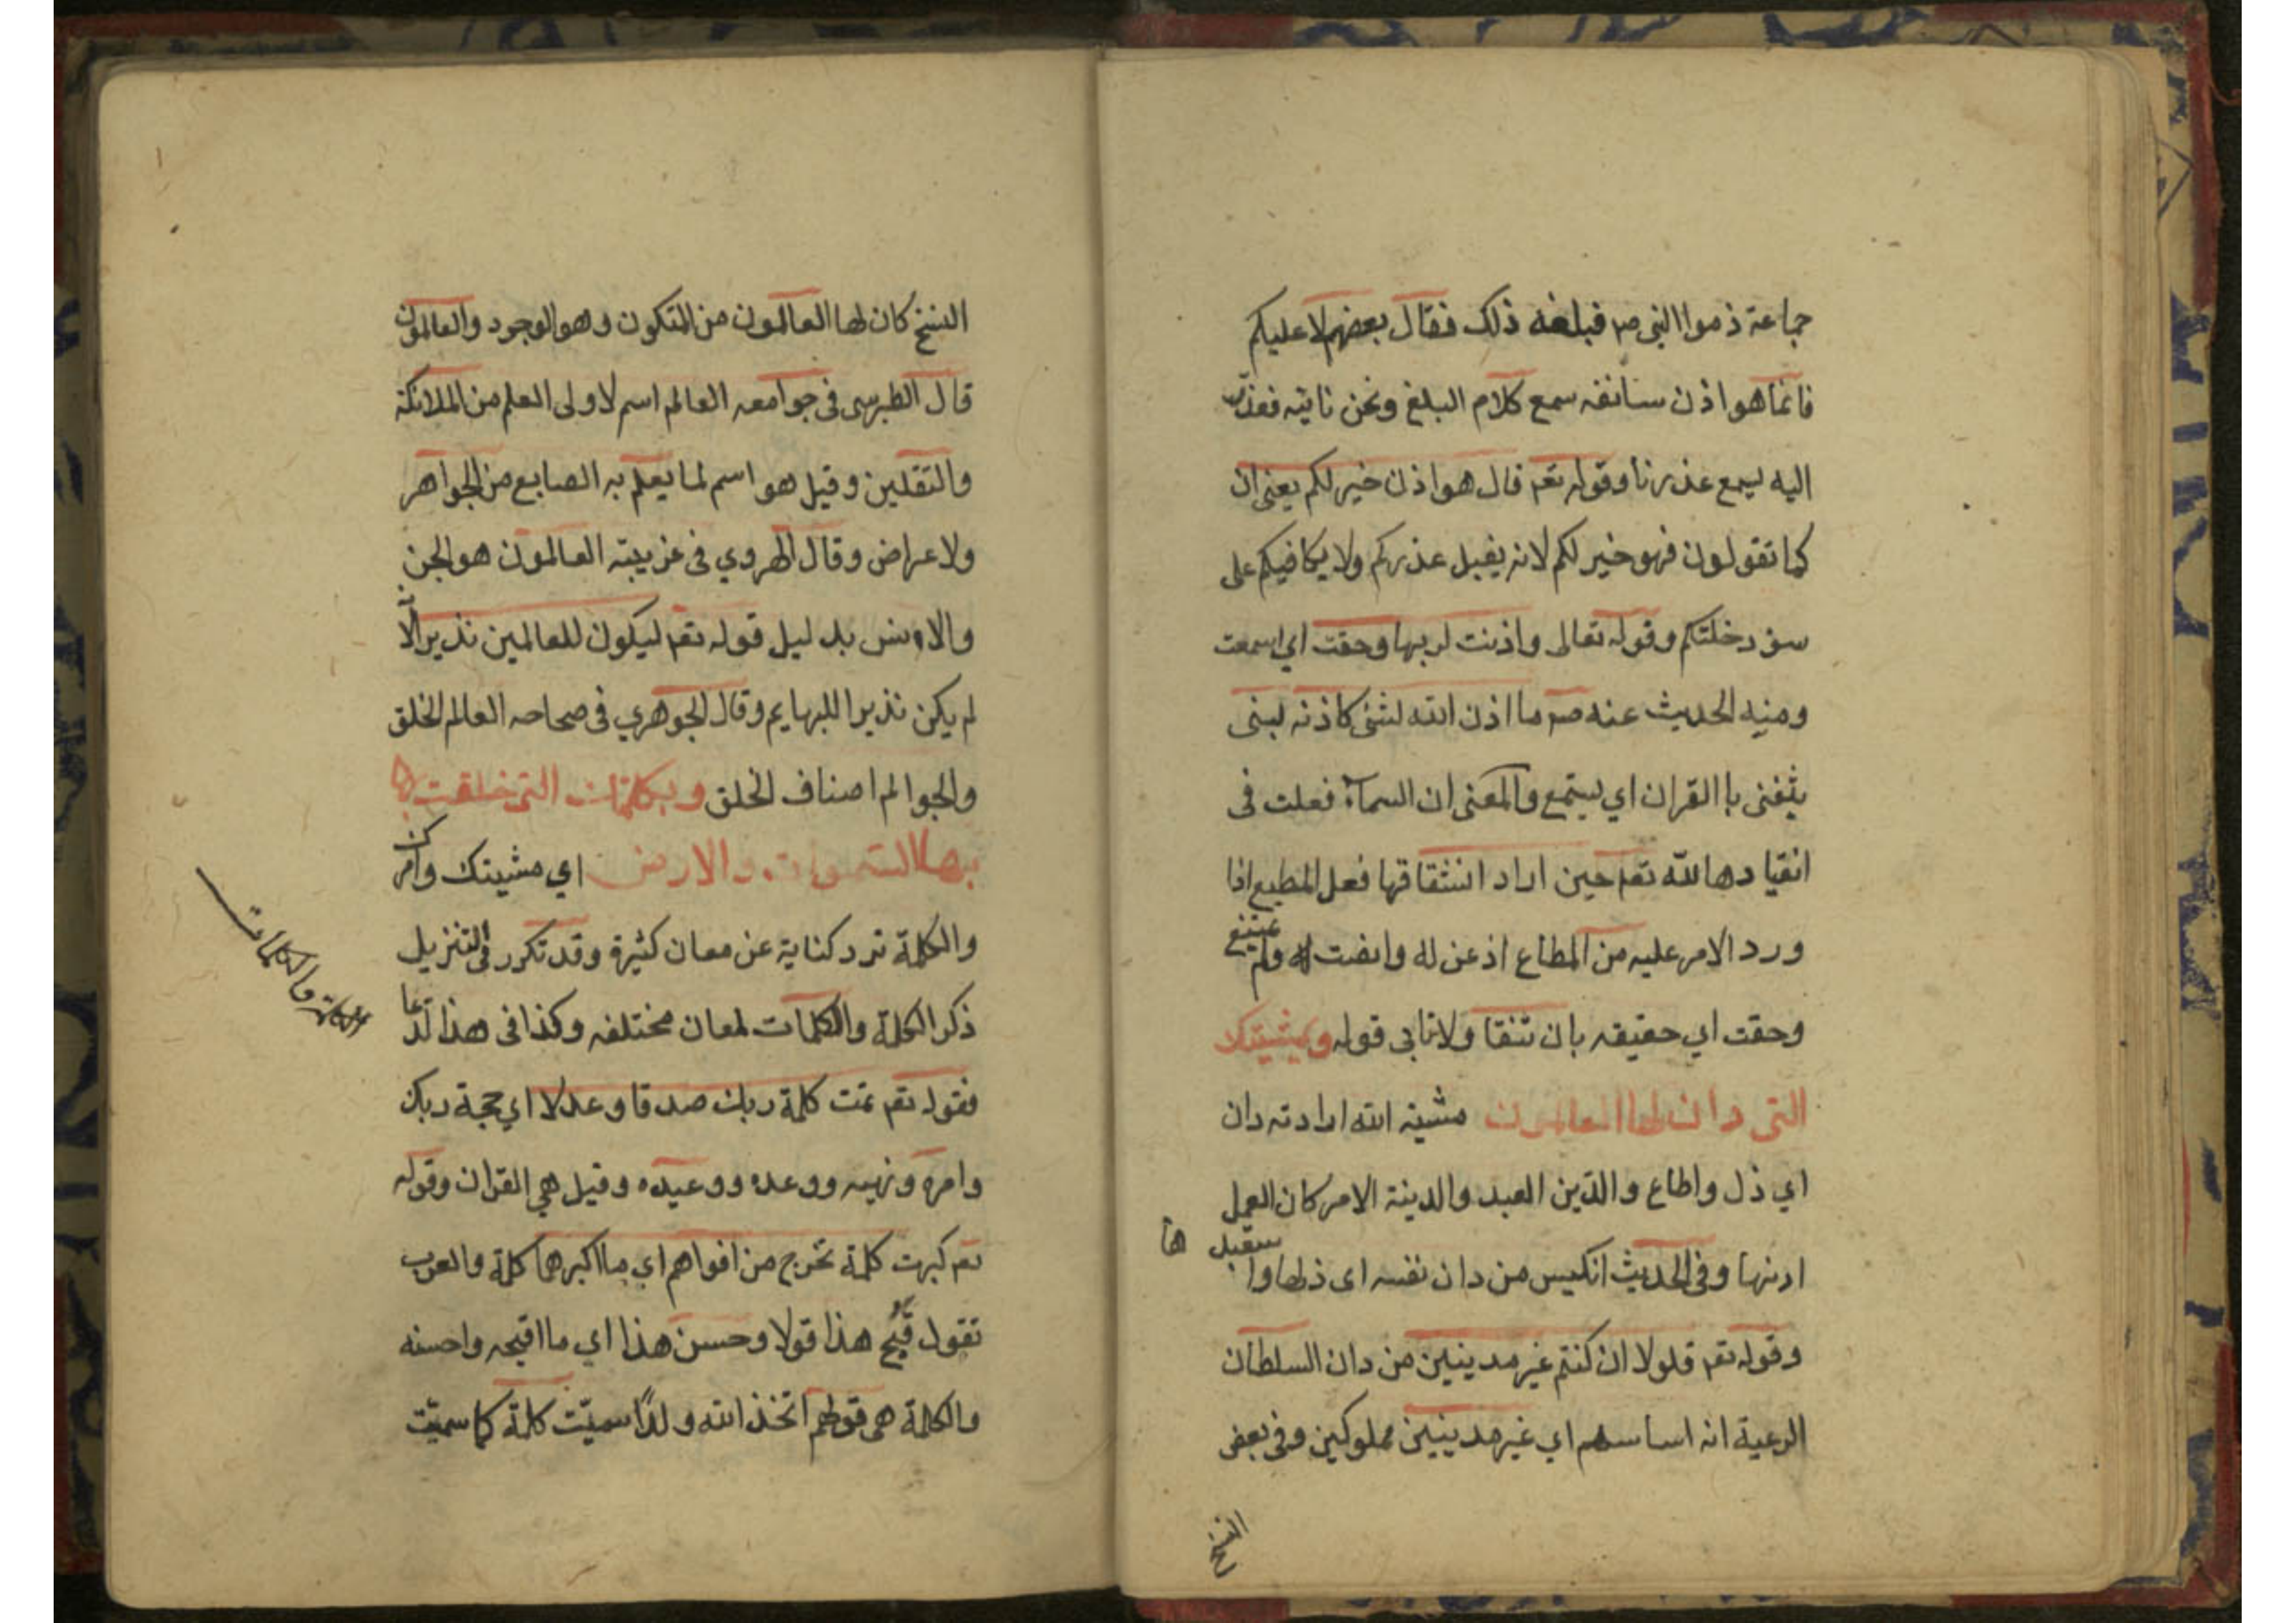 جماعة ذموا النبي صم فبلغه ذلك فقال بعضهم لا عليكم
فانما هو اذن سانفه سمع كلام البلغ ونحن ناتيه فعذر
اليه ليسمع عذرنا وقوله تعم قال هو اذن خير لكم يعني ان
كما تقولون فهو خير لكم لانه يقبل عذركم ولا يكافيكم على
سؤ دخلتكم وقوله تعالى واذنت لربها وحقت اي سمعت
ومنه الحديث عنه صم ما اذن الله لشئ كاذنه لبنى
يتغنى باالقران اي يستمع والمعنى ان السماء فعلت في
انقيادها لله تعم حين اراد انشقاقها فعل المطيع اذا
ورد الامر عليه من المطاع اذعن له وانصت له ولم يمتنع
وحقت اي حقيقه بان تنقا ولا تابى قوله وبمشيتك
التي دان لها العالمون مشية الله ارادته دان
اي ذل واطاع والدين العبد والدينة الامر كان العمل
ادنها وفى الحديث الكيس من دان نفسه اى ذلها وا ستعبدها
وقوله تعم فلولا ان كنتم غير مدينين من دان السلطان
الرعية انه اساسهم اي غير مدينين مملوكين وفى بعض
النسخ
النسخ كان لها العالمون من التكون وهو الوجود والعالمون
قال الطبرسى فى جوامعه العالم اسم لاولى العلم من الملائكة
والثقلين وقيل هو اسم لما يعلم به الصانع من الجواهر
ولاعراض وقال الهروي فى غريبيه العالمون هو الجن
والانس بدليل قوله تعم ليكون للعالمين نذيرا لانه
لم يكن نذيرا للبهايم وقال الجوهري فى صحاحه العالم الخلق
والجوالم اصناف الخلق وبكلماتك التي خلقت
بها السموات والارض اي مشيتك وامرك
والكلمة ترد كناية عن معان كثيرة وقد تكرر فى التنزيل
ذكر الكلمة والكلمات لمعان مختلفه وكذا فى هذا لدعا
فقوله تعم تمت كلمة ربك صدقا وعدلا اي حجة ربك
وامره ونهيه ووعده ووعيده وقيل هي القران وقوله
تعم كبرت كلمة تخرج من افواههم اي ما اكبرها كلمة والعرب
تقول قبح هذا قولا وحسن هذا اي ما اقبحه واحسنه
والكلمة هى قولهم اتخذ الله ولدًا سميّت كلمة كما سميّت
الكلمة والكلمات